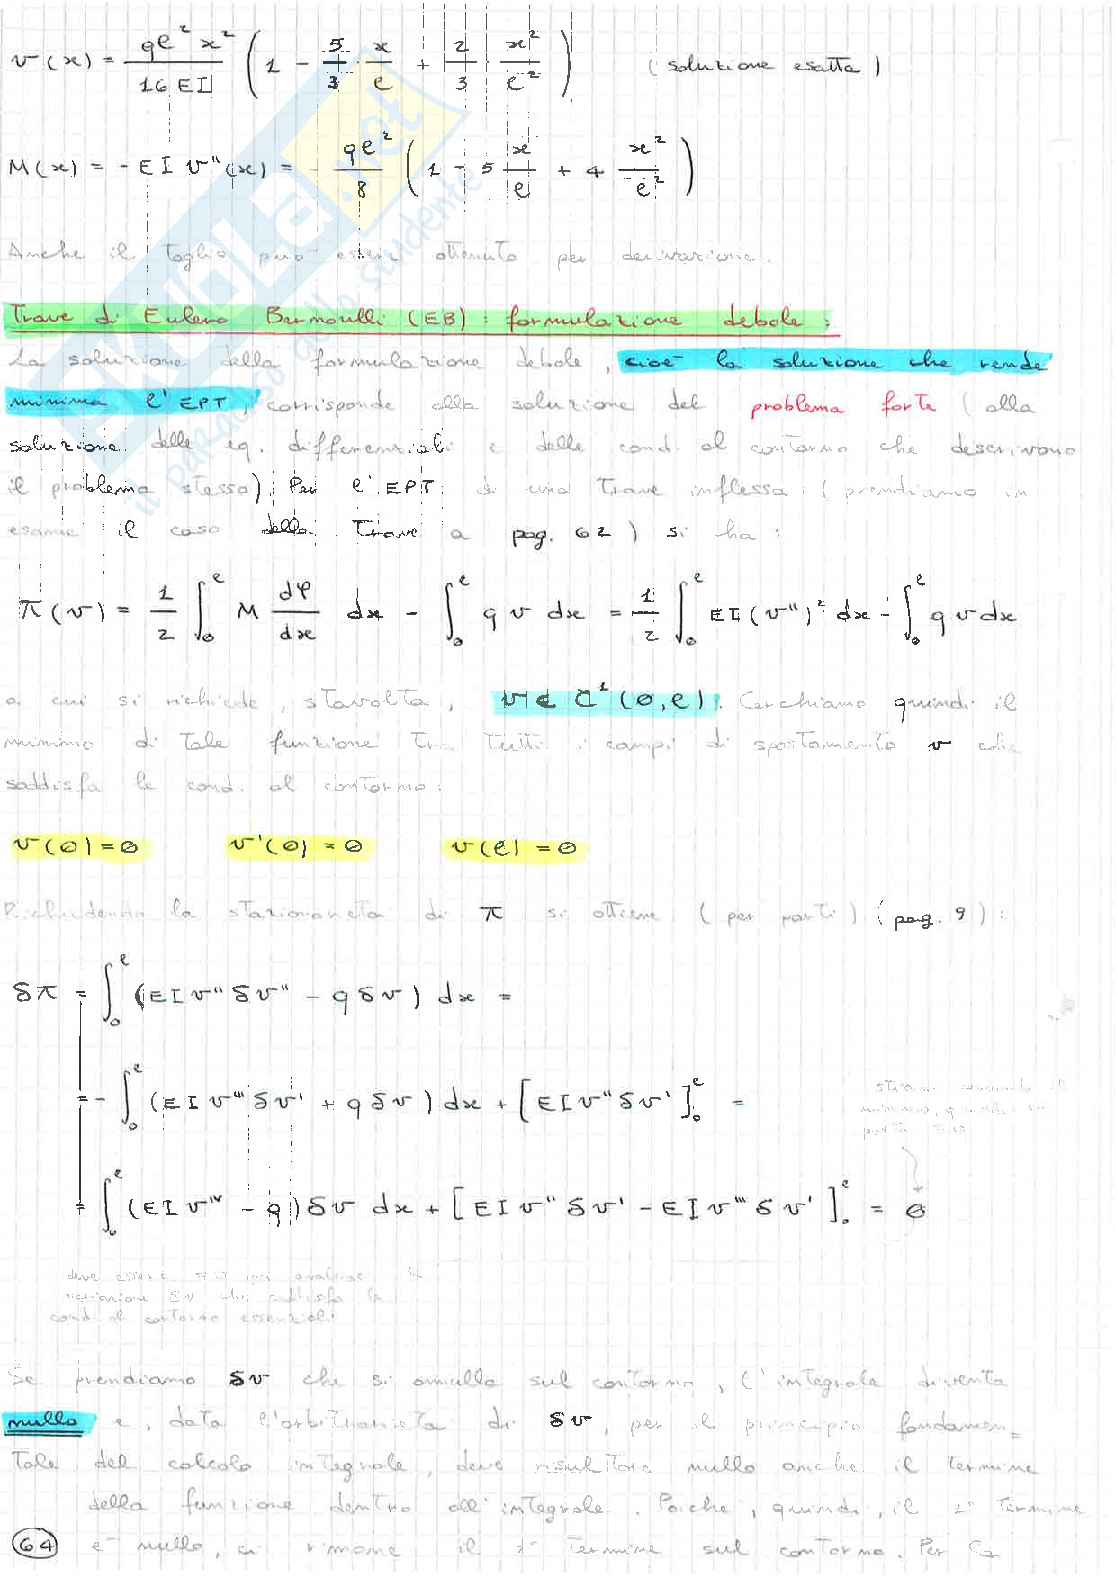 v(x) = qℓ²x²/16EI (1 - 5/3 · x/ℓ + 2/3 · x²/ℓ²) (soluzione esatta)
M(x) = -EI v''(x) = - qℓ²/8 (1 - 5 x/ℓ + 4 x²/ℓ²)
Anche il taglio può essere ottenuto per derivazione.
Trave di Eulero Bernoulli (EB): formulazione debole:
La soluzione della formulazione debole, cioè la soluzione che rende
minima l'EPT, corrisponde alla soluzione del problema forte (alla
soluzione delle eq. differenziali e delle cond. al contorno che descrivono
il problema stesso). Per l'EPT di una trave inflessa (prendiamo in
esame il caso della trave a pag. 62) si ha:
π(v) = 1/2 ∫₀^ℓ M dφ/dx dx - ∫₀^ℓ q v dx = 1/2 ∫₀^ℓ EI(v'')² dx - ∫₀^ℓ q v dx
a cui si richiede, stavolta, v ∈ C¹(0,ℓ). Cerchiamo quindi il
minimo di tale funzione tra tutti i campi di spostamento v che
saddisfa le cond. al contorno:
v(0)=0 v'(0)=0 v(ℓ)=0
Richiedendo la stazionarietà di π si ottiene (per parti) (pag. 9):
δπ = ∫₀^ℓ (EI v'' δv'' - q δv) dx =
= - ∫₀^ℓ (EI v''' δv' + q δv) dx + [EI v'' δv']₀^ℓ =
= ∫₀^ℓ (EI v'ᵛ - q) δv dx + [EI v'' δv' - EI v''' δv']₀^ℓ = 0
deve essere
variazione δv che saddisfa le
cond. al contorno essenziali
Se prendiamo δv che si annulla sul contorno, l'integrale diventa
nullo e, data l'arbitrarietà di δv, per il principio fondamen=
tale del calcolo integrale, deve risultare nullo anche il termine
della funzione dentro all'integrale. Poiché, quindi, il 2° termine
è nullo, ci rimane il 1° termine sul contorno. Per
64